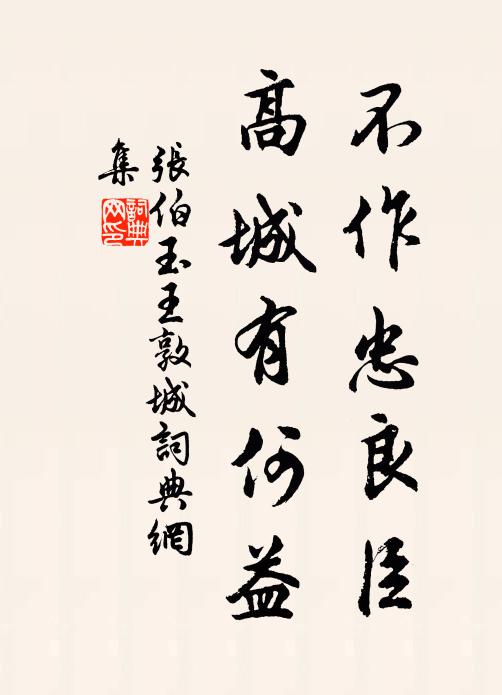 不作忠良臣
高城有何益
張伯玉王敦城詞典網
集
詞典
网印